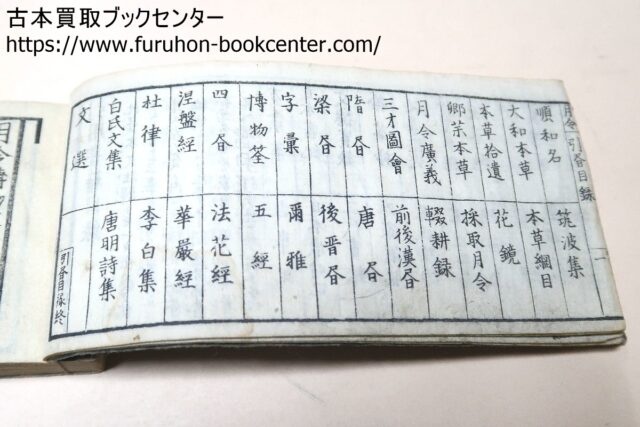 古本買取ブックセンター
https://www.furuhon-bookcenter.com/
月令引書目録
一
順和名
筑波集
大和本草
本草綱目
本草拾遺
花鏡
本草
採取月令
月令廣義
輟耕録
三才圖會
前後漢書
隋書
唐書
梁書
後晋書
字彙
爾雅
博物筌
五經
四書
法花經
涅盤經
華嚴經
杜律
李白集
白氏文集
唐明詩集
文選
引書目録終